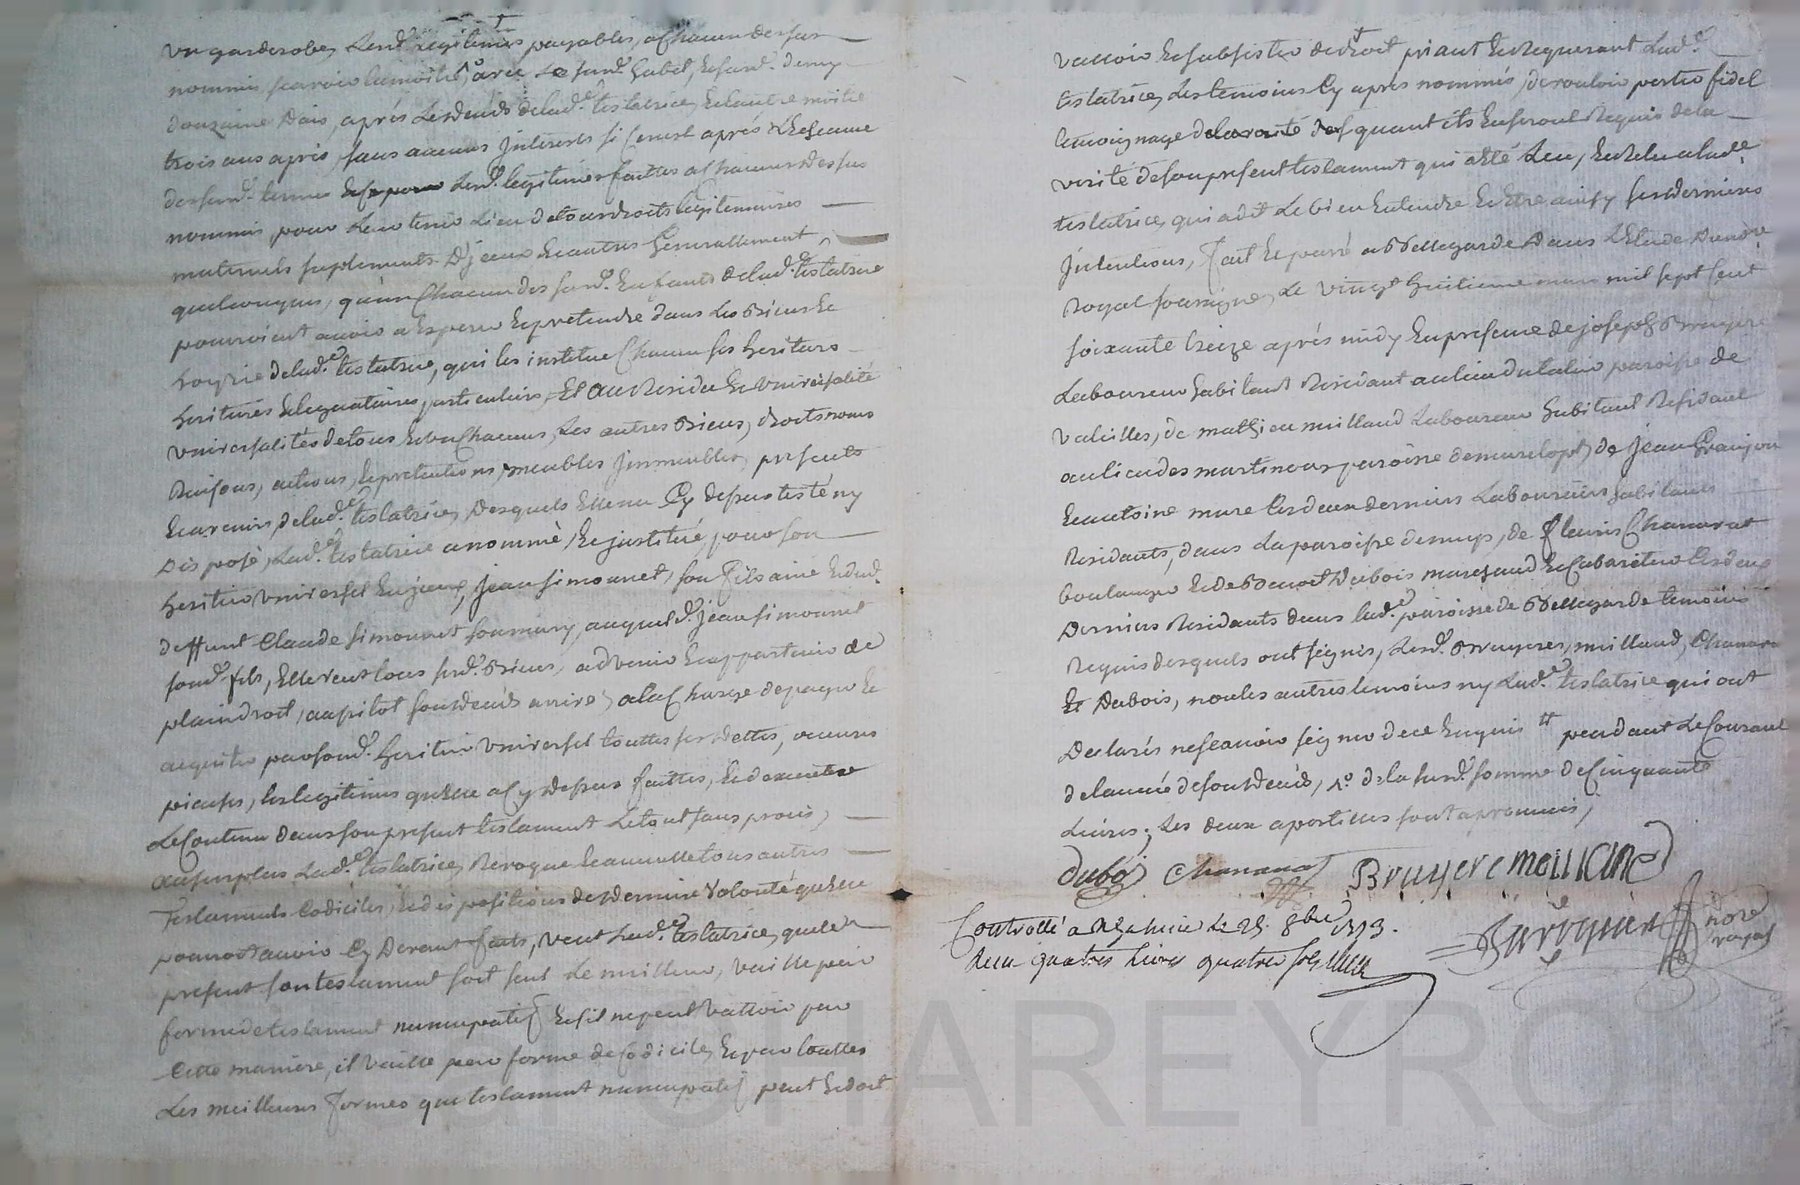 un garderobe, lesd. legitimes payables, a chacun des sus
nommés scavoir la moitié, avec le susd. habit, et susd. demy
douzaine d'ais, après le deceds de lad.e testatrice, et l'autre moitié
trois ans après, sans aucuns interets si ce n'est après l'echeance
des susd. termes lesd. legitimes faittes a chacun des sus
nommés pour leur tenir lieu de tous droits legitimaires
maternels suplements d'jceux et autres generallement
quelconques, qu'un chacun des susd. enfants de lad.e testatrice
pourroient avoir a esperer et pretendre dans les biens et
hoyrie de lad.e testatrice, qui les institue chacun ses heritiers
heritieres et legataires particuliers, Et au Residu et universalité
universalités de tous et un chacuns, les autres biens, droits noms
Raisons, actions, et pretentions, meubles jmmeubles, presents
et avenir, de lad.e testatrice, desquels elle n'a cy dessus testé ny
disposé, lad.e testatrice a nommé, et jnstitué, pour son
heritier universel en jceux, jean simonnet, son fils ainé et dud.
deffunt Claude simonnet son mary, auquel d. jean simonnet
son d. fils, elle veut tous sesd. biens, advenir et appartenir de
plain droit, au pitot son deceds arrivé, a la charge de payer et
acquitter par son d. heritier universel touttes ses dettes, oeuvres
pieuses, les legitimes qu'elle a cy dessus faittes, et d'executer
le contenu dans son present testament le tout sans procès,
au surplus lad.e testatrice, Revoque et annulle tous autres
Testaments Codiciles, et dispositions de derniere volonté qu'elle
pourroit avoir cy devant faits, veut lad.e testatrice, que le
present son testament soit seul le meilleur, vaille par
forme de testament nuncupatif et s'il ne peut valloir par
cette maniere, il vaille par forme de Codicile, et par touttes
les meilleures formes que testament nuncupatif peut et doit
valloir et subsister de droit priant et Requerant lad.e
testatrice, les temoins cy après nommés, de vouloir porter fidel
temoignage de la verité quant ils en seront Requis de la
verité de son present testament qui a été leu, et Releu a lad.e
testatrice, qui a dit le bien entendre et être ainsy ses dernieres
jntentions, fait et passé a Bellegarde dans l'Etude du no.re
Royal soussigné, le vingt huitieme mars mil sept cent
soixante treize après midy en presence de joseph Bruyere
laboureur habitant Residant au lieu du paroisse de
Valeilles, de mathieu milland laboureur habitant Residant
au lieu des martinons paroisse de, de jean Granjon
et antoine mure les deux derniers laboureurs habitants
Residants, dans la paroisse de, de fleuris Chanavat
boulanger et de Benoit Dubois marchand et Cabaretier les deux
derniers Residants dans lad.e paroisse de Bellegarde temoins
Requis desquels ont signés, lesd. Bruyere, milland, Chanavat
et Dubois, non les autres temoins ny lad.e testatrice qui ont
declarés ne scavoir signer de ce enquis tt pendant le courant
de l'année de son deceds, de la susd. somme de cinquante
livres; les deux apostilles sont aprouvées,
duboi Chanavat Bruyere meillland
Controllé a le 25. 8bre 1773.
Receu quatres livres quatres sols
no.re
royal
CHAREYRON